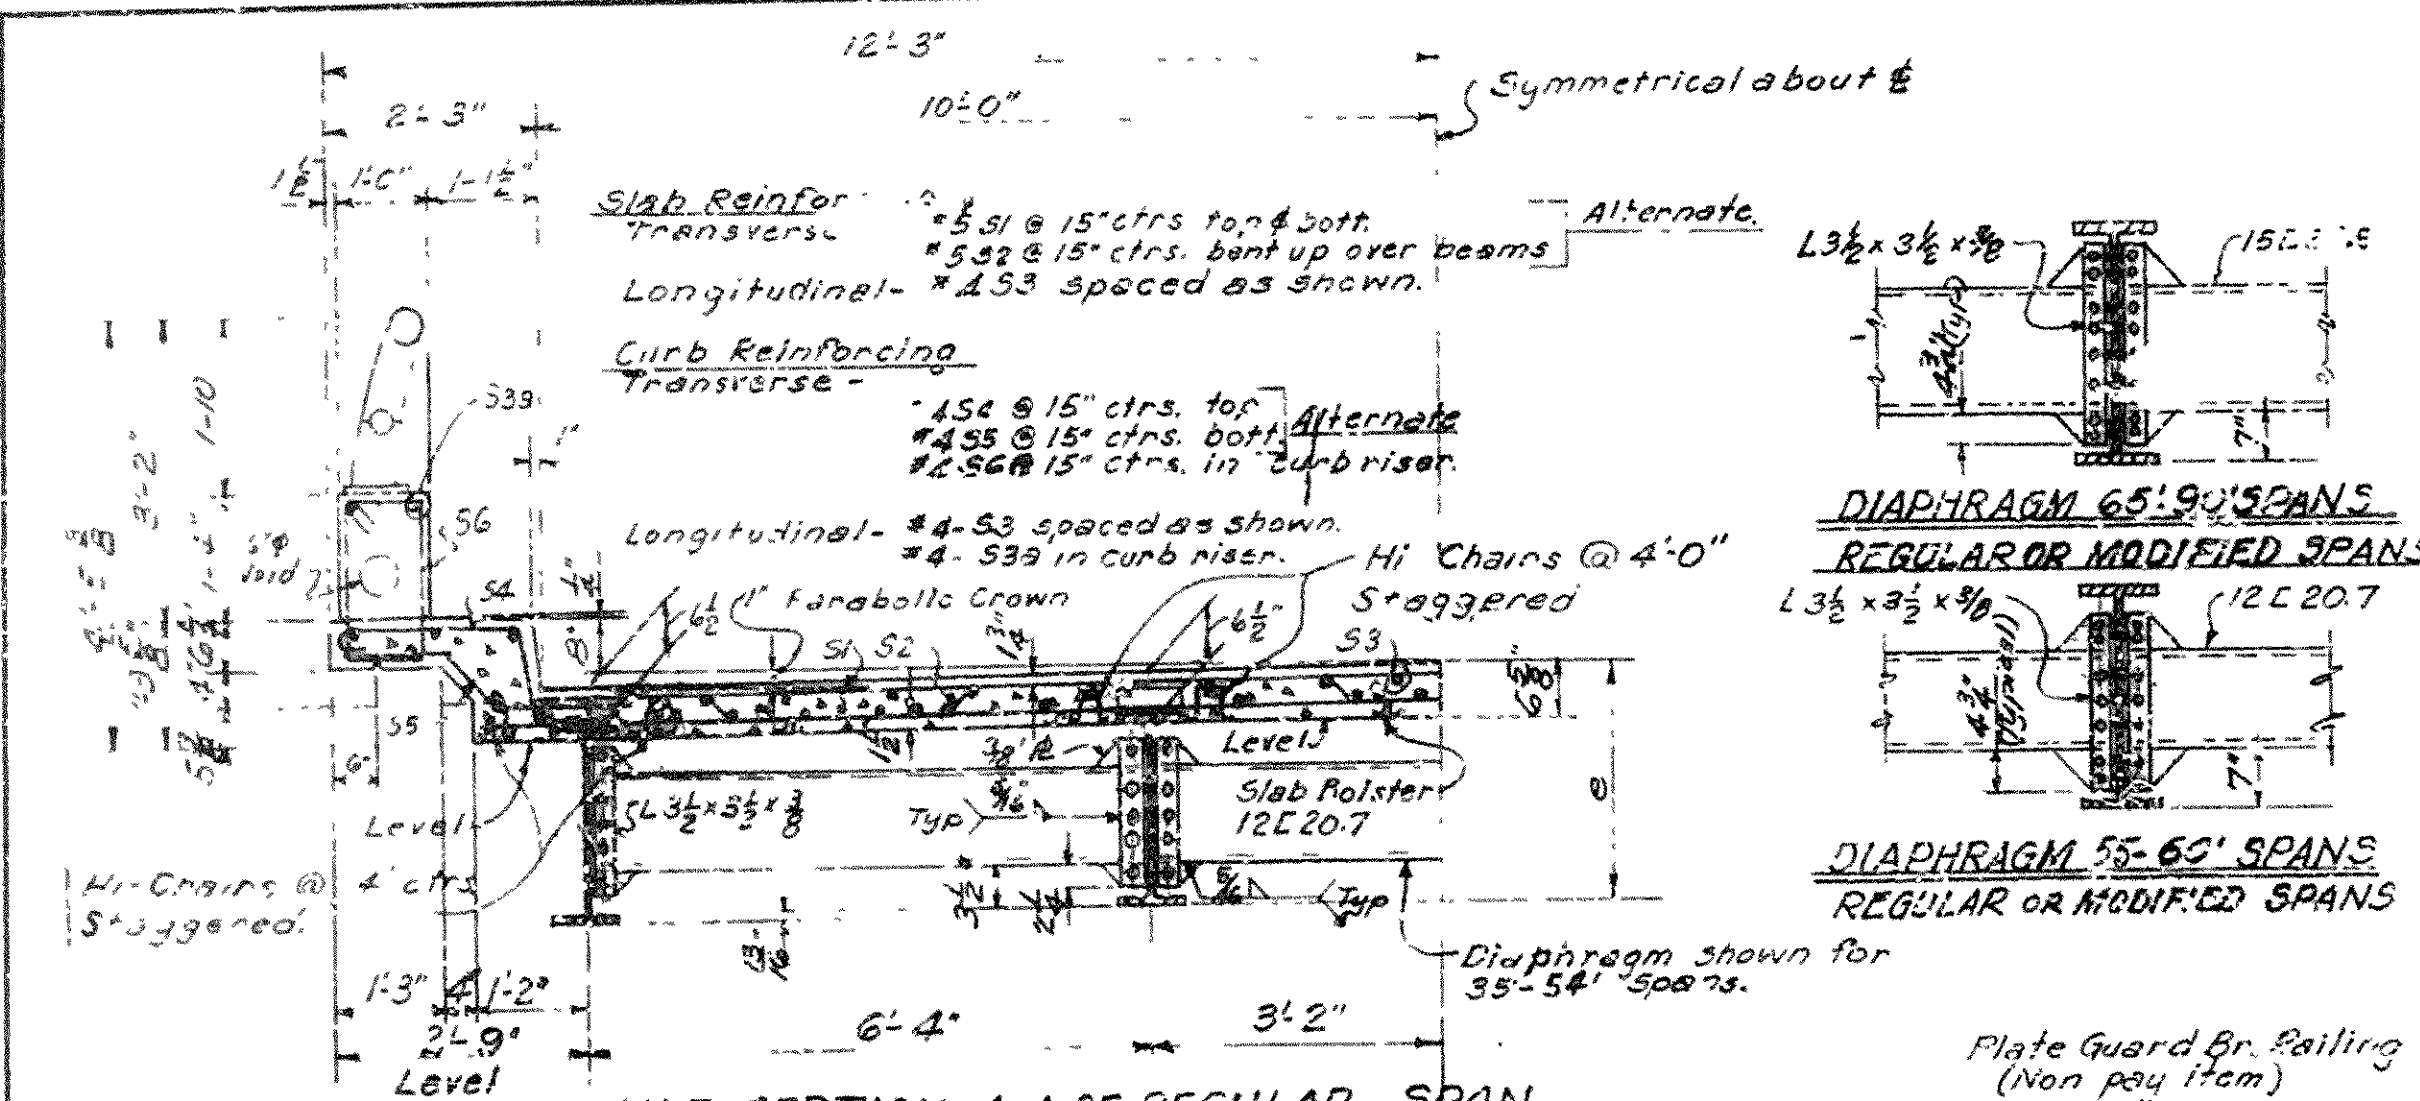 12'-3"
10'-0"
Symmetrical about ℄
2'-3"
1½" 1'-0" 1'-1½"
Slab Reinfor
Transverse
#5 S1 @ 15" ctrs top & bott.
#5 S2 @ 15" ctrs. bent up over beams
Alternate.
Longitudinal- #4 S3 spaced as shown.
Curb Reinforcing
Transverse -
#4 S4 @ 15" ctrs. top
#4 S5 @ 15" ctrs. bott.
Alternate
#4 S6 @ 15" ctrs. in curb riser.
Longitudinal- #4-S3 spaced as shown.
#4-S3a in curb riser.
Hi Chairs @ 4'-0"
Staggered
S3a
1"
S6
S4
3'-2"
1-10
8"
6½"
1" Parabolic Crown
S1 S2
1¾"
6½"
S3
6⅝"
S5
6"
1½
Level
⅜" ℄
Level
Slab Bolster
12[20.7
e
L3½ x 3½ x ⅜
Typ
5/16
5/16
Typ
Hi-Chairs @ 4' ctrs
Staggered.
3½
2¼
13/16"
Diaphragm shown for
35'-54' Spans.
1'-3" 4" 1'-2"
2'-9"
Level
6'-4"
3'-2"
SECTION A-A OF REGULAR SPAN
L3½ x 3½ x ⅜
4¾" (Typ)
7"
DIAPHRAGM 65'-90' SPANS
REGULAR OR MODIFIED SPANS
L3½ x 3½ x ⅜
12[20.7
4¾" (Typical)
7"
DIAPHRAGM 55-60' SPANS
REGULAR OR MODIFIED SPANS
Plate Guard Br. Railing
(Non pay item)